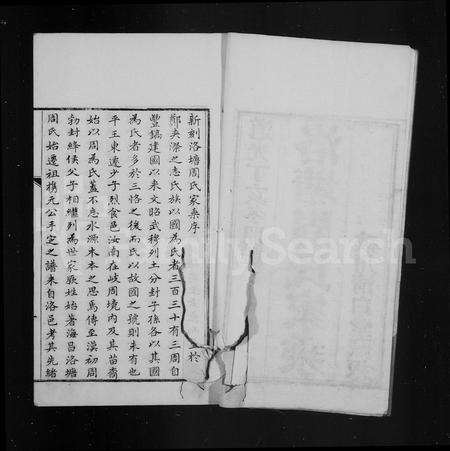 新刻洛塘周氏家乘序
鄭夾漈之志氏族以國為氏者三百三十有三周自
豐鎬建國以來文昭武穆列土分封子孫各以其國
為氏者多於三恪之後而氏以故國之號則未有也
平王東遷少子烈食邑汝南在岐周境內及其苗裔
始以周為氏蓋不忘水源木本之思焉傳至漢初周
勃封絳侯父子相繼列為世家厥姓始著海昌洛塘
周氏始遷祖携元公手定之譜來自洛邑考其先緒
於
FamilySearch